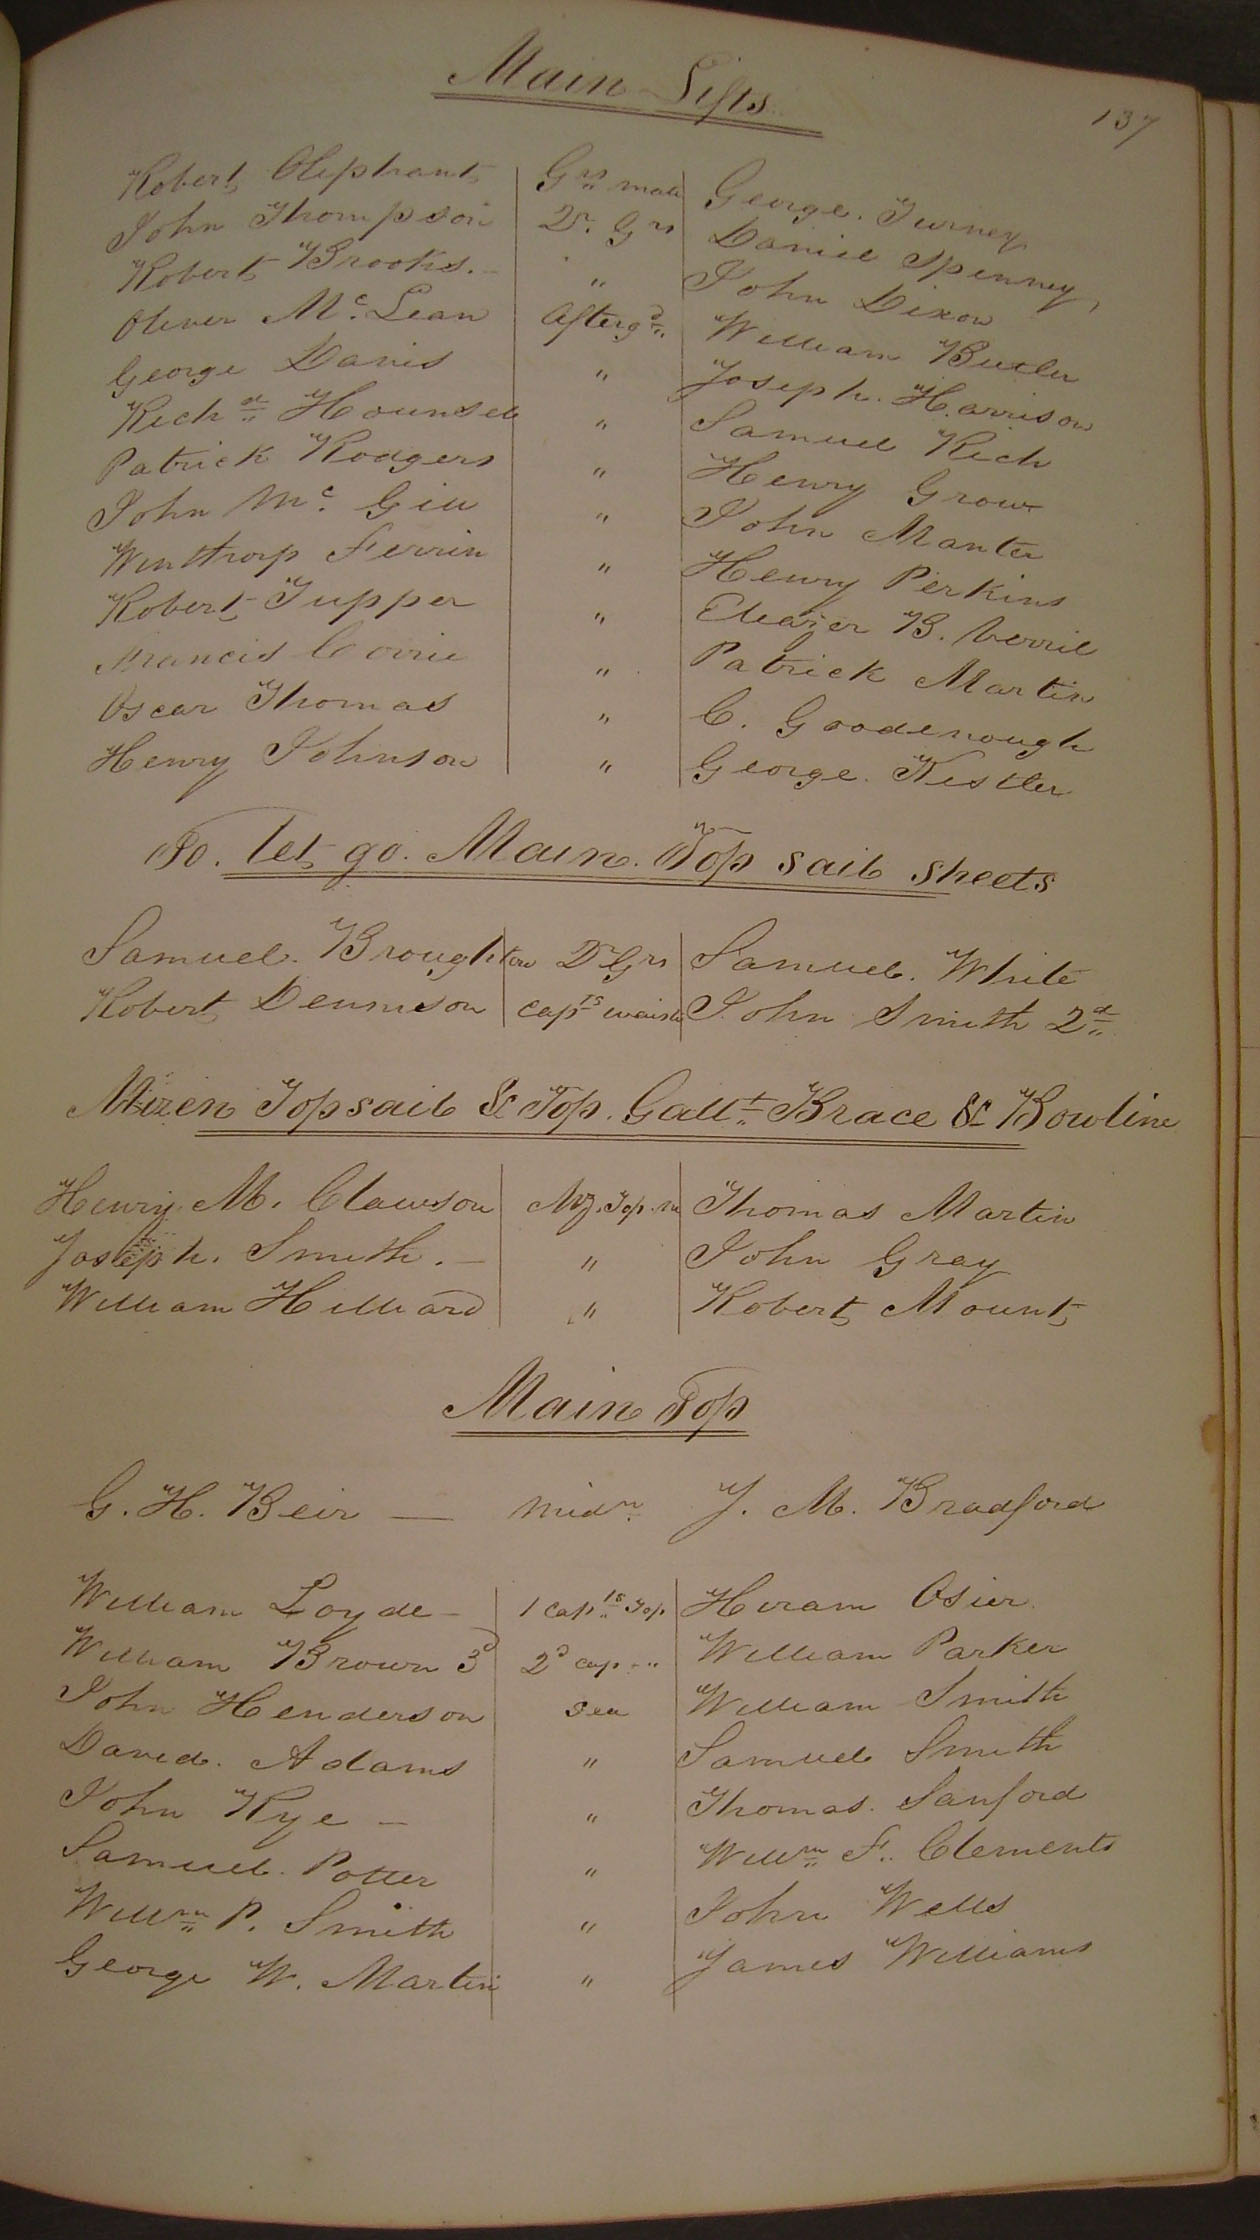 137
Main Lifts
Robert Oliphant Grs mate George Turney
John Thompson Qr. Grs Daniel Spenney
Robert Brooks. " John Dixon
Oliver Mc. Lean Aftergd. William Butler
George Davis " Joseph. Harrison
Richd. Hounsel " Samuel Rich
Patrick Rodgers " Henry Grow
John Mc. Gill " John Manter
Winthrop Ferrin " Henry Perkins
Robert Tupper " Eleazer B. Verril
Francis Corrie " Patrick Martin
Oscar Thomas " C. Goodenough
Henry Johnson " George. Kestler
To. let go. Main. Top sail sheets
Samuel. Broughton Qr Grs Samuel. White
Robert Dennison capts waist John Smith 2d
Mizen Topsail & Top. Gallt. Brace & Bowline
Henry M. Clawson Mz. Top. m Thomas Martin
Joseph. Smith. — " John Gray
William Hilliard " Robert Mount
Main Top
G. H. Beir — Midn. J. M. Bradford
William Loyde – 1 capts Top Hiram Osier.
William Brown 3d 2d cap - " William Parker
John Henderson Sea William Smith
David. Adams " Samuel Smith
John Rye — " Thomas. Sanford
Samuel. Potter " Willm F. Clements
Willm P. Smith " John Wells
George W. Martin " James Williams